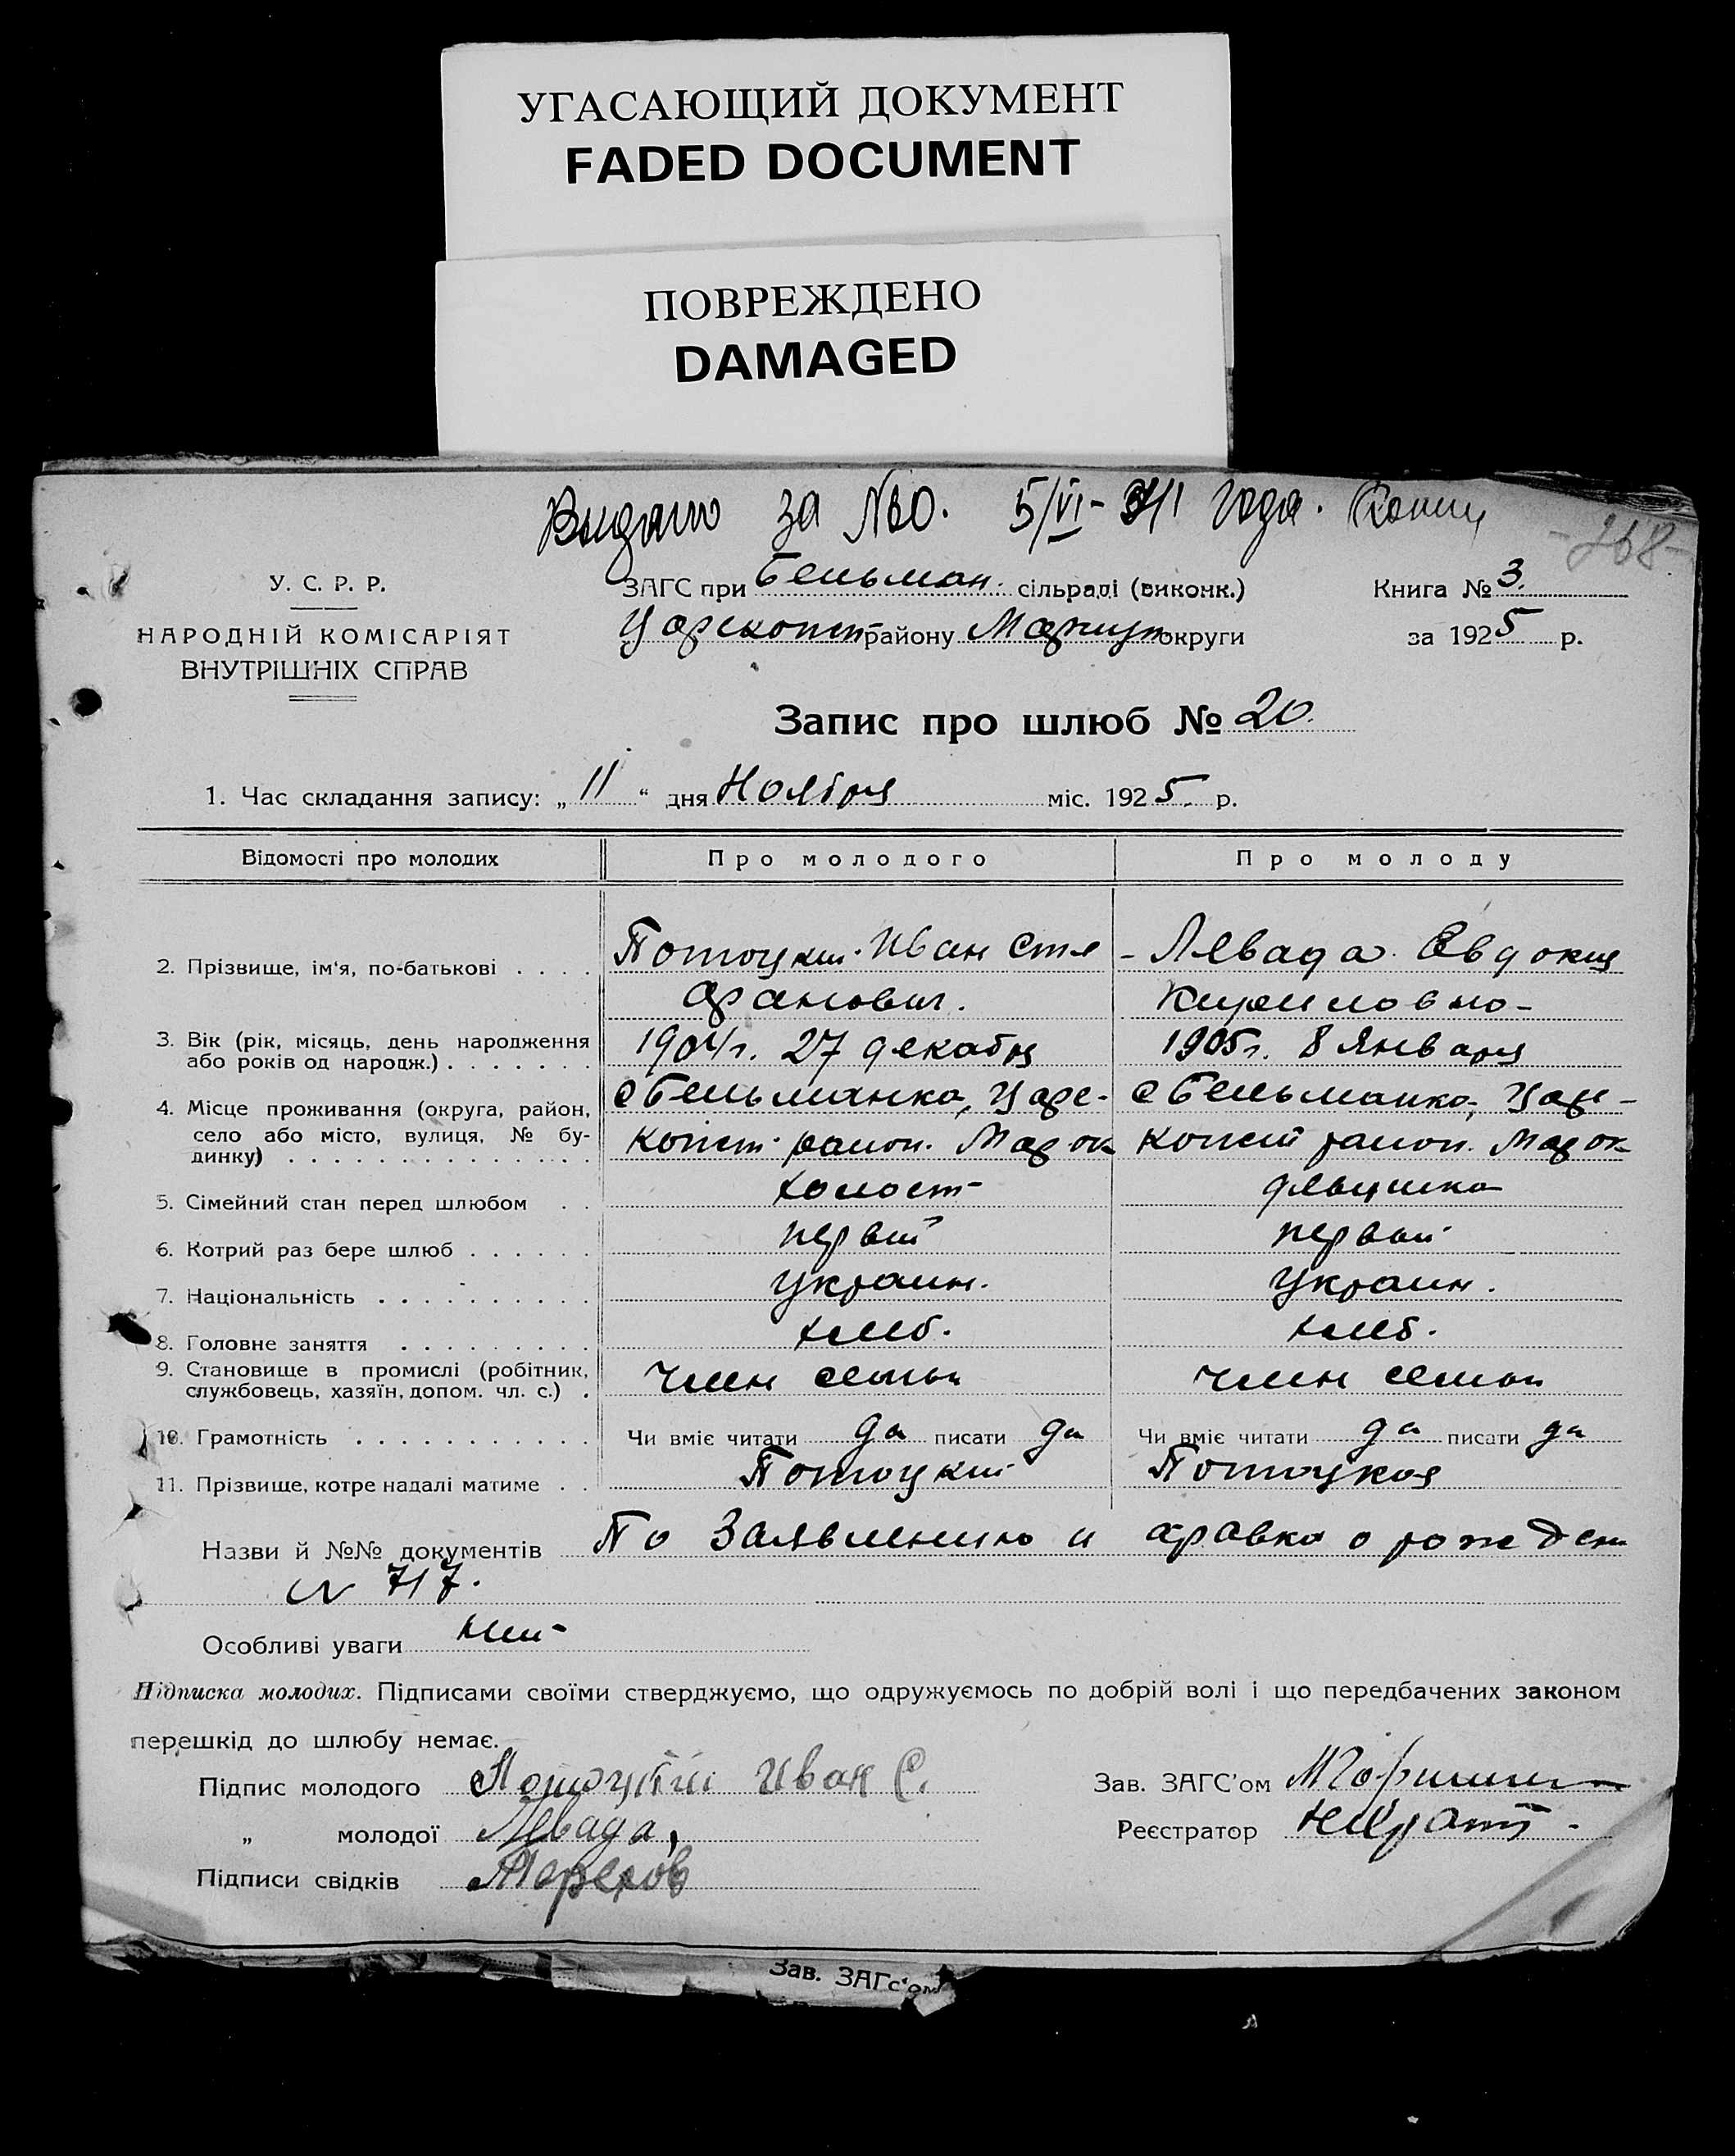 УГАСАЮЩИЙ ДОКУМЕНТ
FADED DOCUMENT
ПОВРЕЖДЕНО
DAMAGED
за №60. 5/VI- года.
-268-
У. С. Р. Р.
НАРОДНІЙ КОМІСАРІЯТ
ВНУТРІШНІХ СПРАВ
ЗАГС при Бельман. сільраді (виконк.)
Царекопст району Мариуп округи
Книга № 3.
за 1925 р.
Запис про шлюб № 20.
1. Час складання запису: „ 11 “ дня Ноября міс. 1925. р.
Відомості про молодих Про молодого Про молоду
2. Прізвище, ім‘я, по-батькові . . . . Потоцкий Иван Сте- Левада Евдокия
фанович. Кириловна-
3. Вік (рік, місяць, день народження 1904г. 27 декабря 1905г. 8 Января
або років од народж.) . . . . . . .
4. Місце проживання (округа, район, с Бельманка, Царе- с Бельманка, Царе-
село або місто, вулиця, № бу- конст район. Мар ок конст район. Мар ок
динку) . . . . . . . . . . . . . .
5. Сімейний стан перед шлюбом . . холост девушка
6. Котрий раз бере шлюб . . . . . . первый первый
7. Національність . . . . . . . . . Украин. Украин.
8. Головне заняття . . . . . . . . . хлеб. хлеб.
9. Становище в промислі (робітник, член семьи член семьи
службовець, хазяїн, допом. чл. с.) .
10. Грамотність . . . . . . . . . . . Чи вміє читати да писати да Чи вміє читати да писати да
11. Прізвище, котре надалі матиме . . Потоцкий Потоцкая
Назви й №№ документів По Заявлению и справка о рожден
№ 717.
Особливі уваги нет
Підписка молодих. Підписами своїми стверджуємо, що одружуємось по добрій волі і що передбачених законом
перешкід до шлюбу немає.
Підпис молодого Потоцкий Иван С.
Зав. ЗАГС'ом
„ молодої Левада,
Реєстратор
Підписи свідків Терехов
Зав. ЗАГс'ом